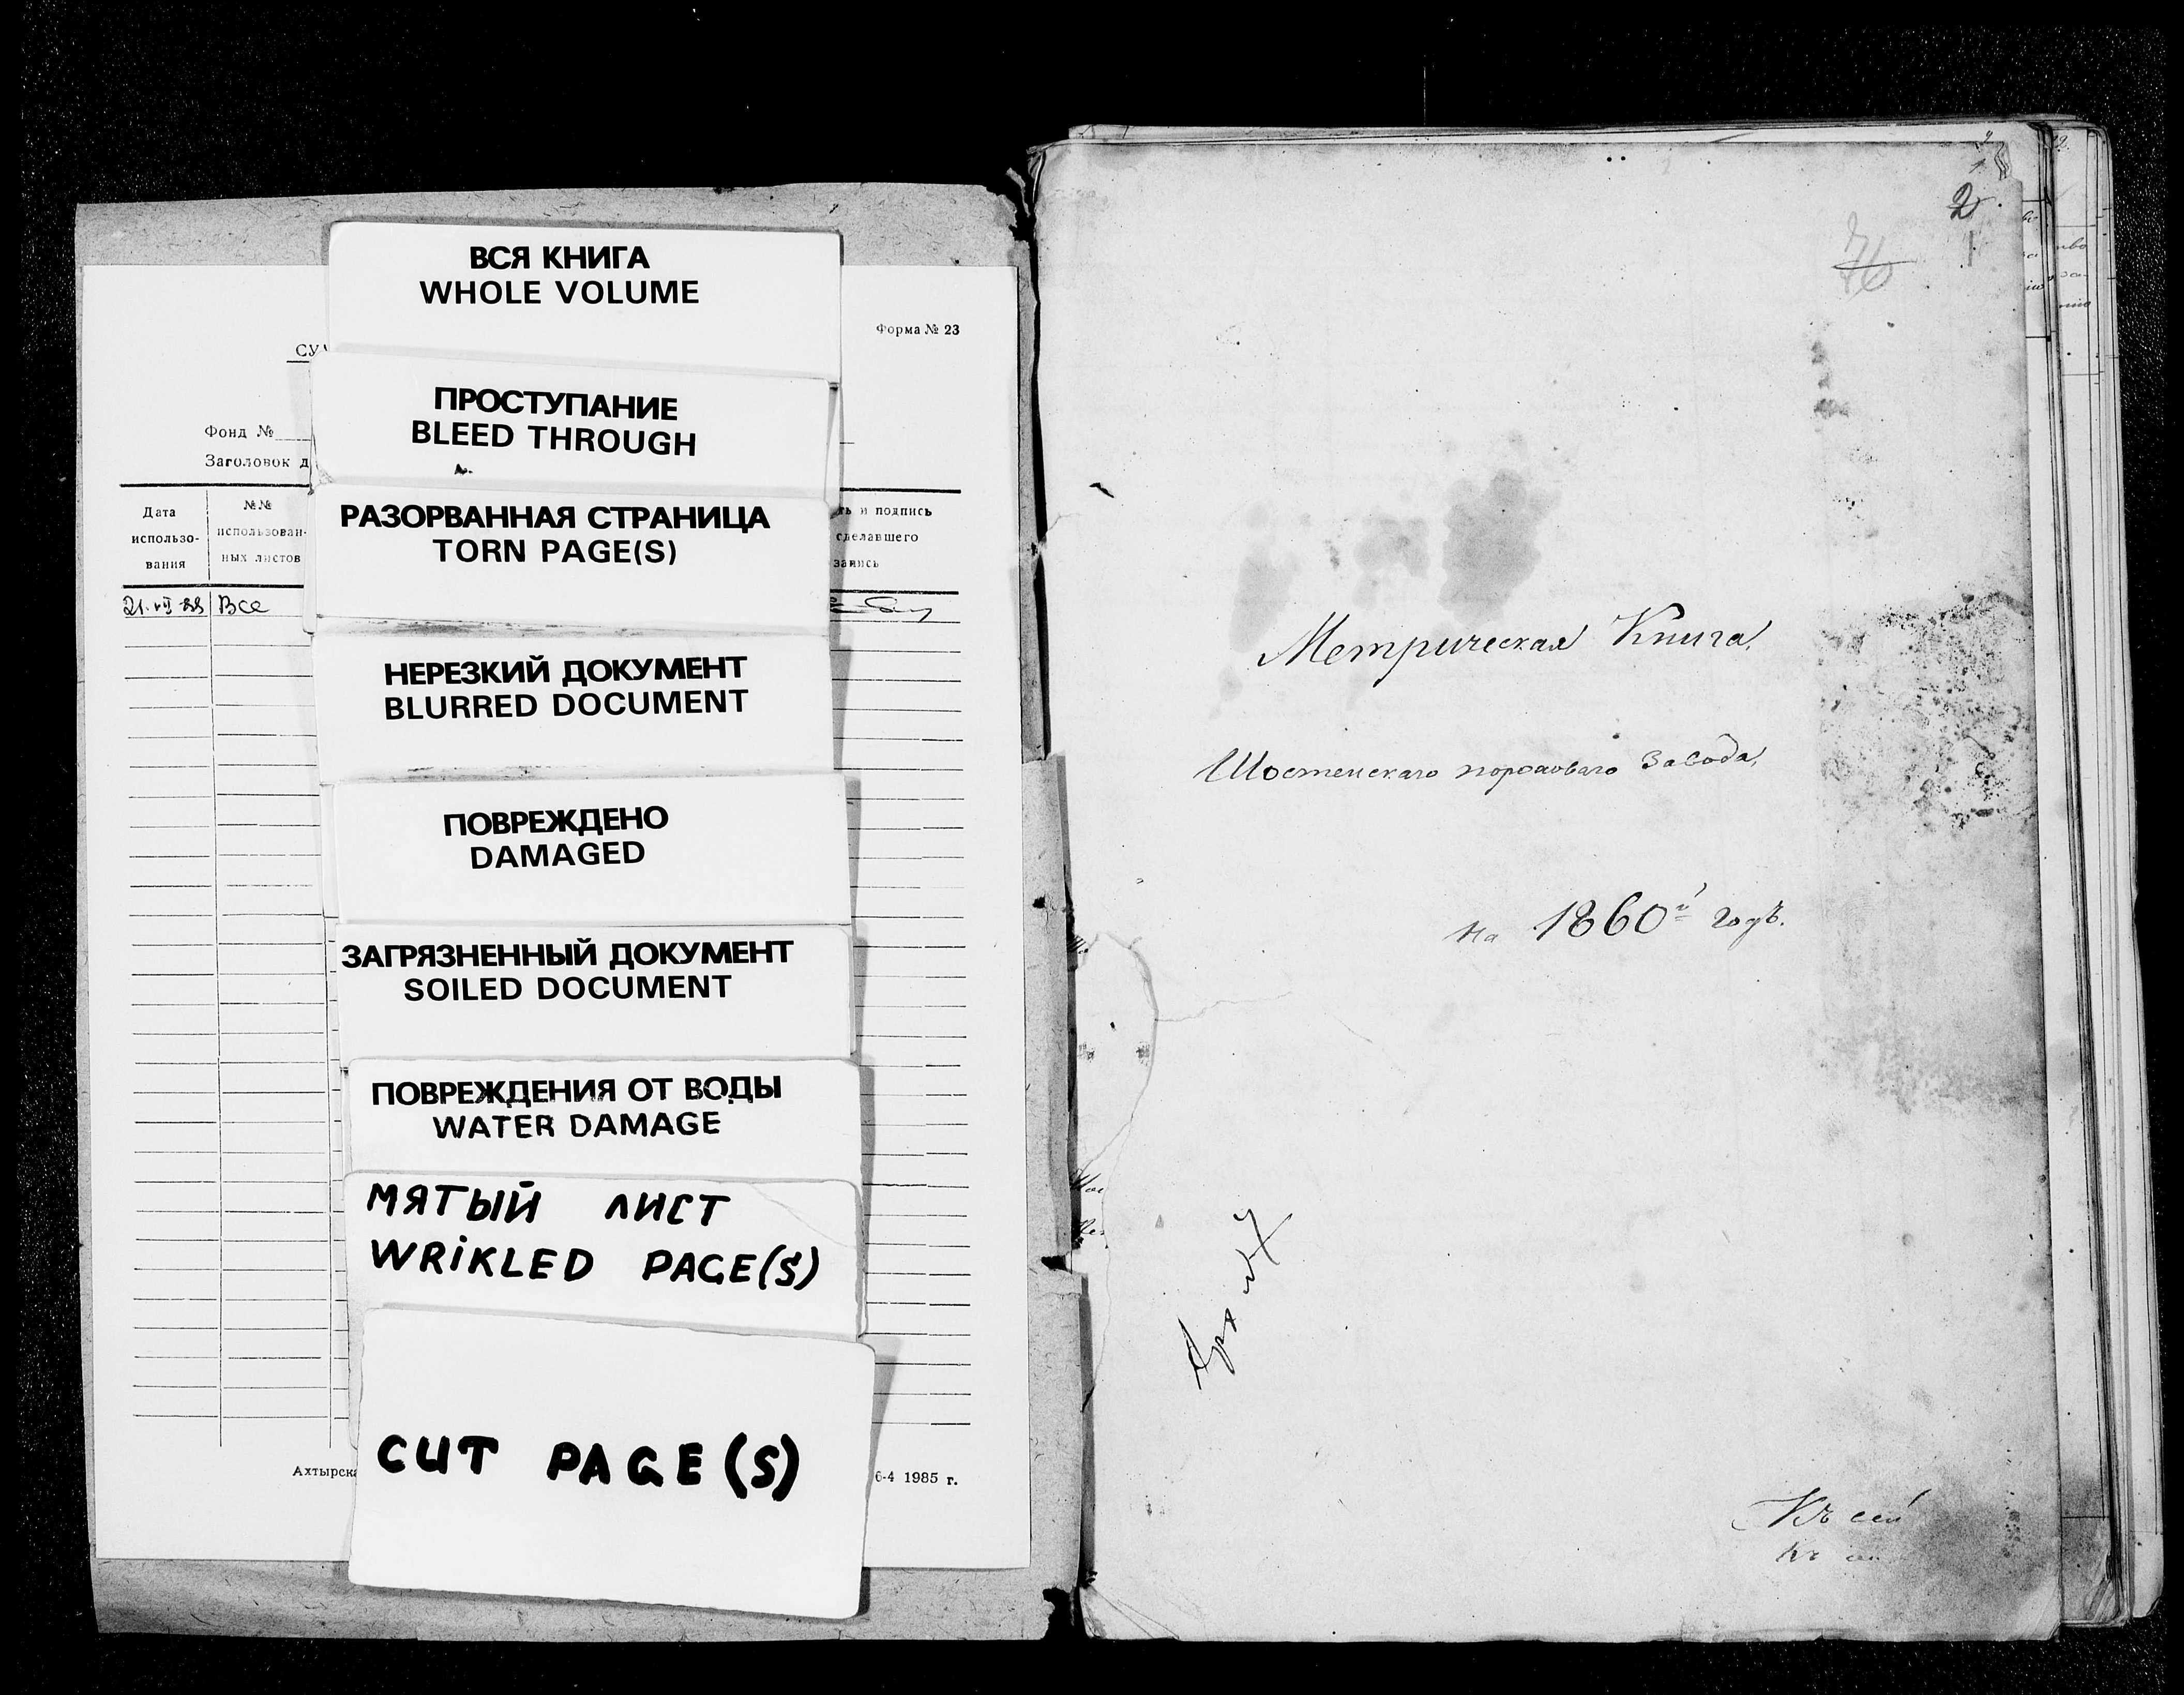 ВСЯ КНИГА
WHOLE VOLUME
Форма № 23
ПРОСТУПАНИЕ
BLEED THROUGH
Фонд №
Заголовок д
РАЗОРВАННАЯ СТРАНИЦА
TORN PAGE(S)
Дата
использо-
вания
№№
использован-
ных листов
ть и подпись
сделавшего
запись
Все
НЕРЕЗКИЙ ДОКУМЕНТ
BLURRED DOCUMENT
ПОВРЕЖДЕНО
DAMAGED
ЗАГРЯЗНЕННЫЙ ДОКУМЕНТ
SOILED DOCUMENT
ПОВРЕЖДЕНИЯ ОТ ВОДЫ
WATER DAMAGE
МЯТЫЙ ЛИСТ
WRIKLED PAGE(S)
CUT PAGE(S)
Ахтырска
6-4 1985 г.
2
1
Метрическая Книга
Шостенскаго пороховаго Завода,
на 1860й годъ.
Къ сей